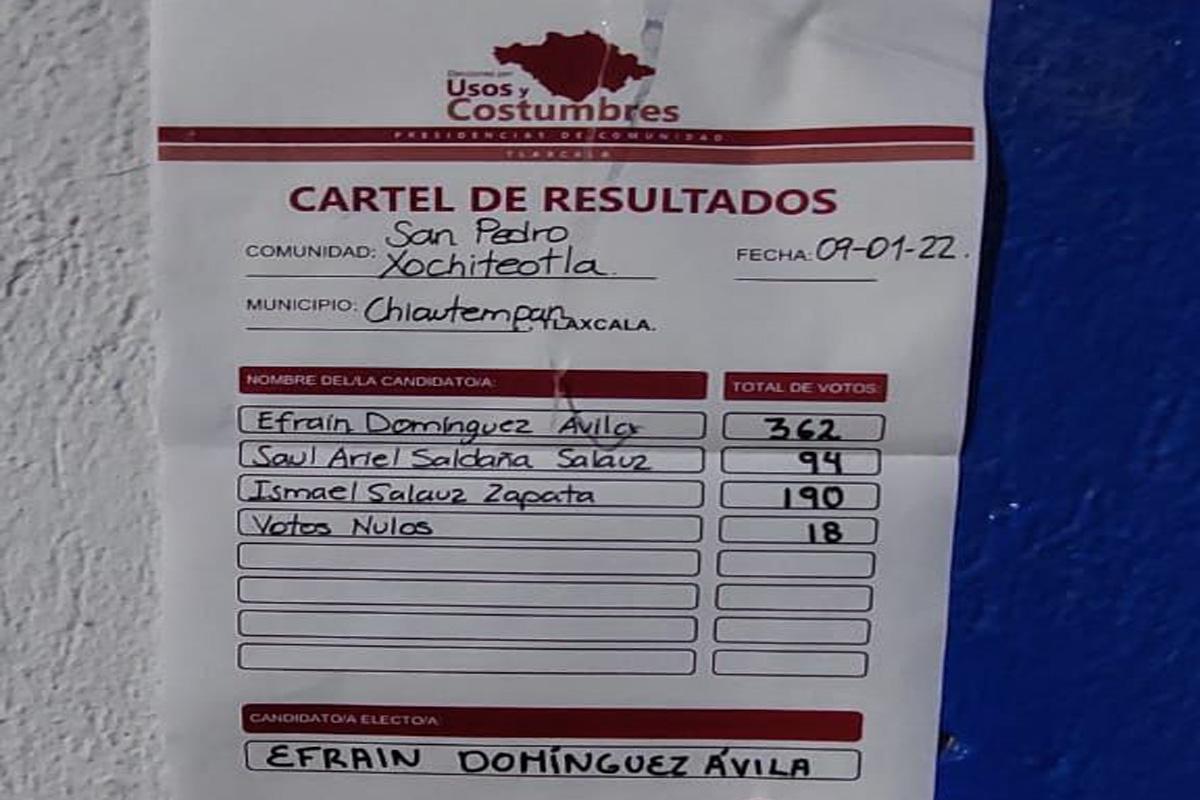 Elecciones por
Usos y
Costumbres
PRESIDENCIAS DE COMUNIDAD
TLAXCALA
CARTEL DE RESULTADOS
COMUNIDAD: San Pedro
Xochiteotla.
FECHA: 09-01-22.
MUNICIPIO: Chiautempan, TLAXCALA.
NOMBRE DEL/LA CANDIDATO/A: TOTAL DE VOTOS:
Efraín Domínguez Ávila 362
Saul Ariel Saldaña Salauz 94
Ismael Salauz Zapata 190
Votos Nulos 18
CANDIDATO/A ELECTO/A:
EFRAIN DOMÍNGUEZ ÁVILA